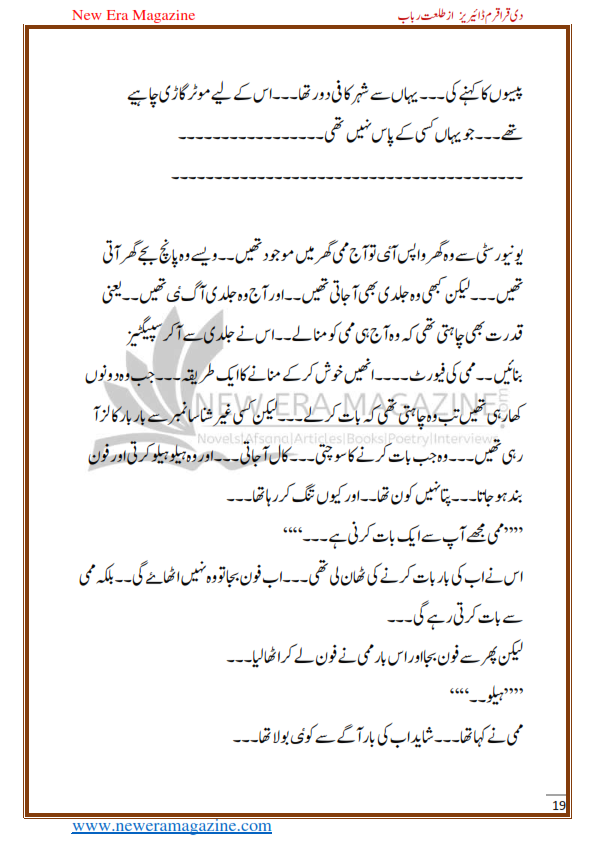 New Era Magazine دی قراقرم ڈائیریز از طلعت رباب
پیسوں کا کہنے کی۔۔۔ یہاں سے شہر کافی دور تھا۔۔۔ اس کے لیے موٹر گاڑی چاہیے
تھے۔۔۔ جو یہاں کسی کے پاس نہیں تھی۔۔۔۔۔۔۔۔۔۔۔۔۔۔۔۔۔
۔۔۔۔۔۔۔۔۔۔۔۔۔۔۔۔۔۔۔۔۔۔۔۔۔۔۔۔۔۔۔۔۔۔۔۔۔۔۔۔۔
یونیورسٹی سے وہ گھر واپس آئی تو آج ممی گھر میں موجود تھیں۔۔ ویسے وہ پانچ بجے گھر آتی
تھیں۔۔۔ لیکن کبھی وہ جلدی بھی آجاتی تھیں۔۔ اور آج وہ جلدی آگ ئی تھیں۔۔ یعنی
قدرت بھی چاہتی تھی کہ وہ آج ہی ممی کو منالے۔۔ اس نے جلدی سے آکر سپیگٹیز
بنائیں۔۔ ممی کی فیورٹ۔۔۔۔ انھیں خوش کر کے منانے کا ایک طریقہ۔۔۔ جب وہ دونوں
کھا رہی تھیں تب وہ چاہتی تھی کہ بات کرلے۔۔۔ لیکن کسی غیر شناسا نمبر سے بار بار کالز آ
رہی تھیں۔۔۔ وہ جب بات کرنے کا سوچتی۔۔۔ کال آجاتی۔۔۔ اور وہ ہیلو ہیلو کرتی اور فون
بند ہو جاتا۔۔۔ پتا نہیں کون تھا۔۔ اور کیوں تنگ کر رہا تھا۔۔۔
”””ممی مجھے آپ سے ایک بات کرنی ہے۔۔۔““
اس نے اب کی بار بات کرنے کی ٹھان لی تھی۔۔۔ اب فون بجا تو وہ نہیں اٹھائے گی۔۔ بلکہ ممی
سے بات کرتی رہے گی۔۔۔
لیکن پھر سے فون بجا اور اس بار ممی نے فون لے کر اٹھا لیا۔۔۔
”””ہیلو۔۔““
ممی نے کہا تھا۔۔۔ شاید اب کی بار آگے سے کوئی بولا تھا۔۔۔
NEW ERA MAGAZINE.com
Novels|Afsana|Articles|Books|Poetry|Interviews
19
www.neweramagazine.com